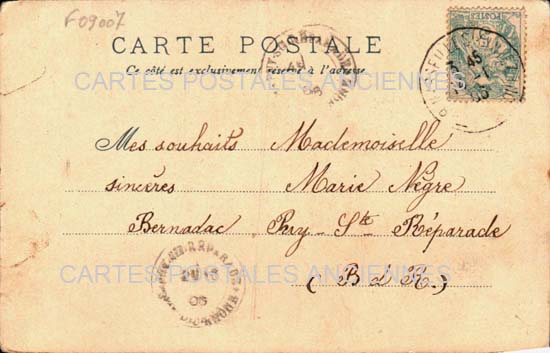 F09007
CARTE POSTALE
Ce côté est exclusivement réservé à l'adresse
CARTES POSTALES ANCIENNES
Mes souhaits Mademoiselle
sincères Marie Nègre
Bernadac Puy-Ste Réparade
CARTES POSTALES ANCIENNES
(B d R.)
POSTES